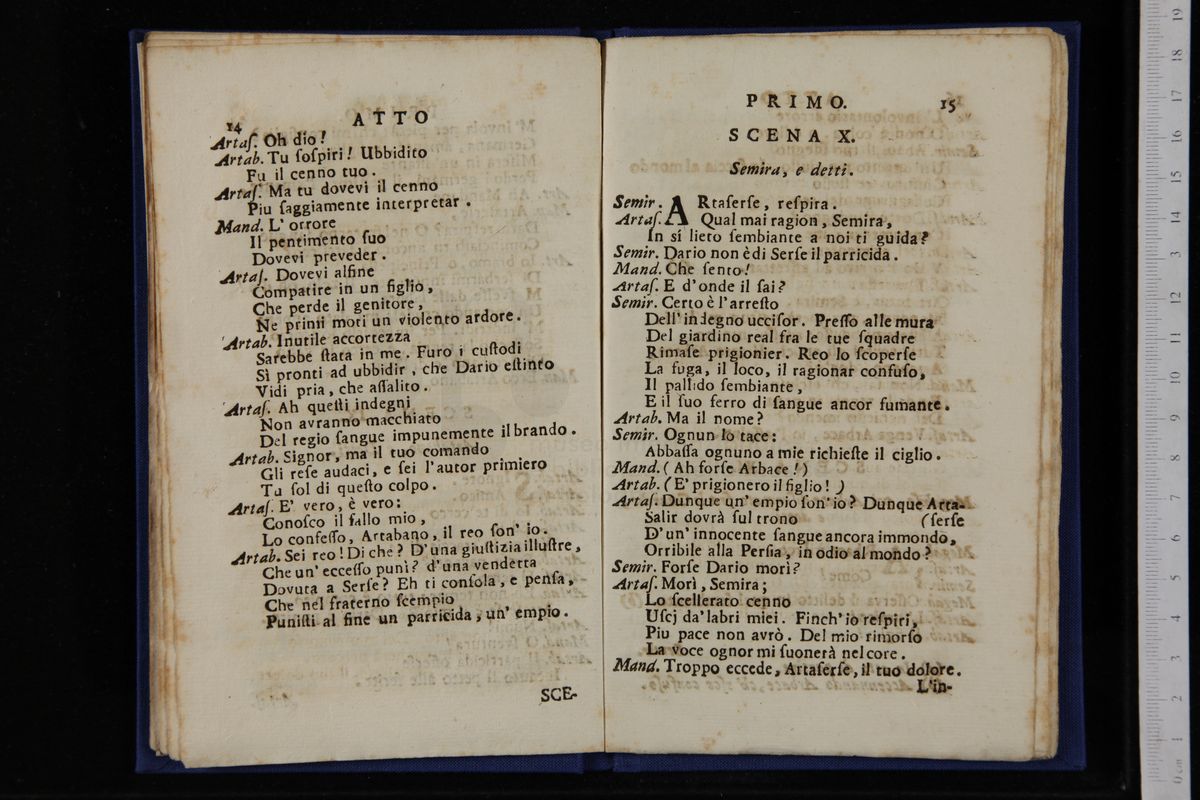 14 ATTO
Artaſ. Oh dio!
Artab. Tu ſoſpiri! Ubbidito
Fu il cenno tuo.
Artaſ. Ma tu dovevi il cenno
Piu ſaggiamente interpretar.
Mand. L' orrore
Il pentimento ſuo
Dovevi preveder.
Artaſ. Dovevi alfine
Compatire in un figlio,
Che perde il genitore,
Ne primi moti un violento ardore.
Artab. Inutile accortezza
Sarebbe ſtata in me. Furo i cuſtodi
Sì pronti ad ubbidir, che Dario eſtinto
Vidi pria, che aſſalito.
Artaſ. Ah queſti indegni
Non avranno macchiato
Del regio ſangue impunemente il brando.
Artab. Signor, ma il tuo comando
Gli reſe audaci, e ſei l'autor primiero
Tu ſol di queſto colpo.
Artaſ. E' vero, è vero:
Conoſco il fallo mio,
Lo confeſſo, Artabano, il reo ſon' io.
Artab. Sei reo! Di che? D'una giuſtizia illuſtre,
Che un' ecceſſo punì? d'una vendetta
Dovuta a Serſe? Eh ti conſola, e penſa,
Che nel fraterno ſcempio
Puniſti al fine un parricida, un' empio.
SCE-
PRIMO. 15
SCENA X.
Semira, e detti.
Semir. ARtaſerſe, reſpira.
Artaſ. Qual mai ragion, Semira,
In sí lieto ſembiante a noi ti guida?
Semir. Dario non è di Serſe il parricida.
Mand. Che ſento!
Artaſ. E d'onde il ſai?
Semir. Certo è l'arreſto
Dell' indegno ucciſor. Preſſo alle mura
Del giardino real fra le tue ſquadre
Rimaſe prigionier. Reo lo ſcoperſe
La fuga, il loco, il ragionar confuſo,
Il pallido ſembiante,
E il ſuo ferro di ſangue ancor fumante.
Artab. Ma il nome?
Semir. Ognun lo tace:
Abbaſſa ognuno a mie richieſte il ciglio.
Mand. (Ah forſe Arbace!)
Artab. (E' prigionero il figlio!)
Artaſ. Dunque un' empio ſon' io? Dunque Arta-
Salir dovrà ſul trono (ſerſe
D'un' innocente ſangue ancora immondo,
Orribile alla Perſia, in odio al mondo?
Semir. Forſe Dario morì?
Artaſ. Morì, Semira;
Lo ſcellerato cenno
Uſcj da' labri miei. Finch' io reſpiri,
Piu pace non avrò. Del mio rimorſo
La voce ognor mi ſuonerà nel core.
Mand. Troppo eccede, Artaſerſe, il tuo dolore.
L'in-